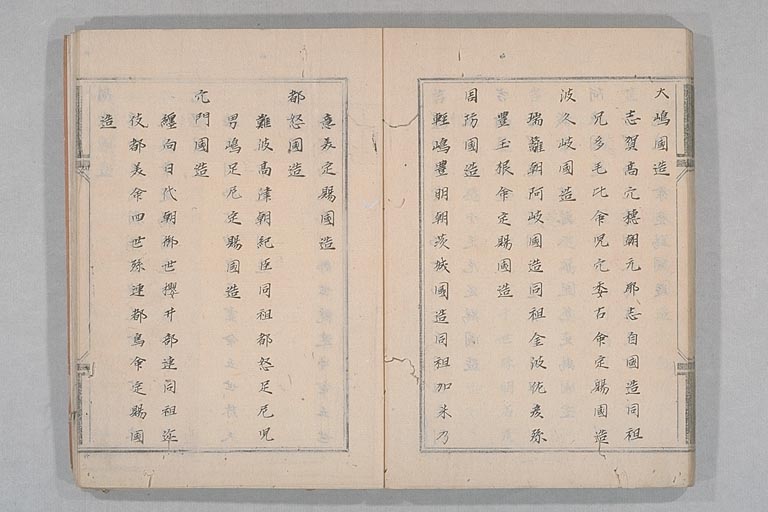 大嶋國造
志賀髙穴穗朝无耶志自國造同祖
兄多毛比命兒穴委古命定賜國造
波久岐國造
瑞籬朝阿岐國造同祖金波佐彦孫
豊玉根命定賜國造
周防國造
軽嶋豊明朝茨城國造同祖加米乃
意美定賜國造
都怒國造
難波髙津朝紀臣同祖都怒足尼兒
男嶋足尼定賜國造
穴門國造
纏向日代朝御世櫻井部連同祖迩
伎都美命四世孫連都鳥命定賜國
造